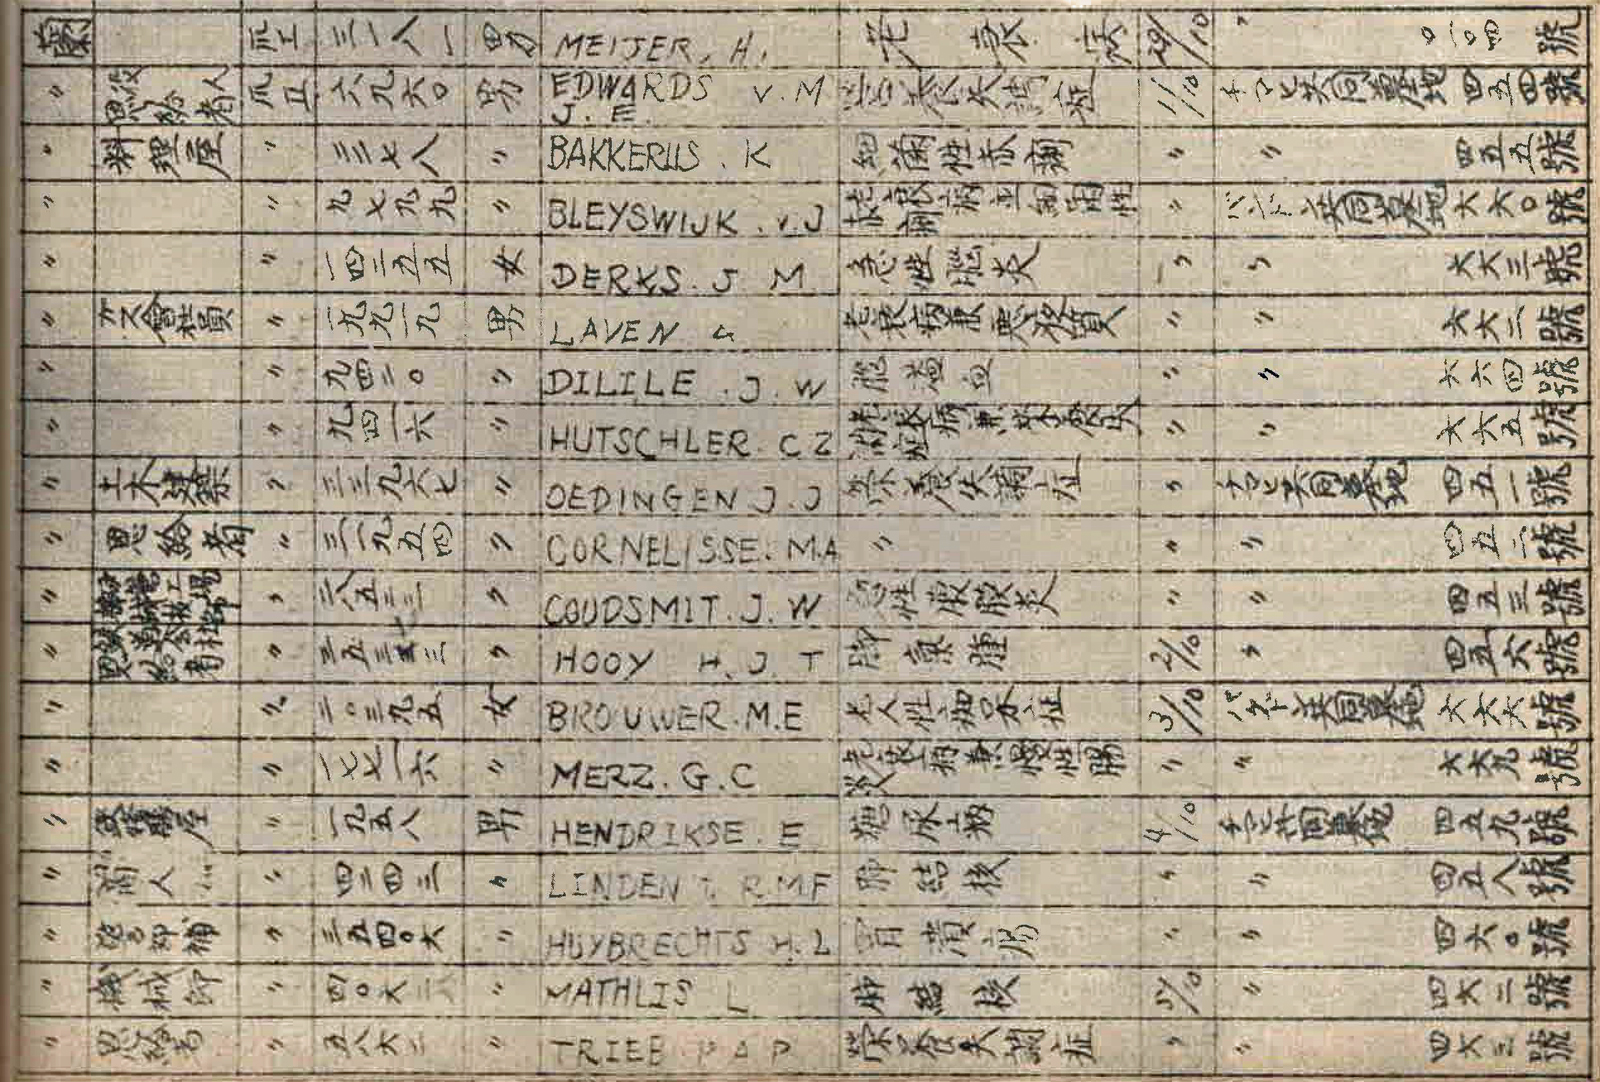 蘭 爪哇 三一八一 男 MEIJER. H. 老衰病 29/10 〃 〇一四 號
〃 恩給者 爪哇 六九六〇 男 EDWARDS V. M J. E. 営養失調症 1/10 チマヒ共同墓地 四五四號
〃 料理屋 〃 三三七八 〃 BAKKERUS. K 細菌性赤痢 〃 〃 四五五號
〃 〃 九七九九 〃 BLEYSWIJK. v. J 老衰病 性 赤痢 〃 バンドン共同墓地 六六〇號
〃 〃 一四三五五 女 DERKS. J M 急性腦炎 〃 〃 六六三號
〃 ガス會社員 〃 一九九一九 男 LAVEN 老衰病兼悪液質 〃 〃 六六二號
〃 〃 九四二〇 〃 DILILE. J. W 腦溢血 〃 〃 六六四號
〃 〃 九四一六 〃 HUTSCHLER. C Z 老衰病兼栄養失調症 〃 〃 六六五號
〃 土木建築 〃 三三九六七 〃 OEDINGEN J. J 栄養失調症 〃 チマヒ共同墓地 四五一號
〃 恩給者 〃 三一九五四 〃 CORNELISSE. M.A 〃 〃 〃 四五二號
〃 〃 二八五三二 〃 COUDSMIT. J. W 急性腹膜炎 〃 〃 四五三號
〃 恩給者 〃 〃 HOOY H. J. T 2/10 〃 四五六號
〃 〃 二〇三九五 女 BROUWER. M. E 老人性症 3/10 バンドン共同墓地 六六六號
〃 〃 一七七一六 〃 MERZ. G. C 老衰病兼慢性腸炎 〃 〃 六六九號
〃 〃 一九五八 男 HENDRIKSE. E 糖尿病 4/10 チマヒ共同墓地 四五九號
〃 商人 〃 四二四三 〃 LINDEN v. R.M.F 肺結核 〃 〃 四五八號
〃 〃 三五四〇六 〃 HUYBRECHTS H. L 胃潰瘍 〃 〃 四六〇號
〃 機械師 〃 四〇六二 〃 MATHLIS L 肺結核 5/10 〃 四六二號
〃 恩給者 〃 五八六二 〃 TRIEB P A P 栄養失調症 〃 〃 四六三號